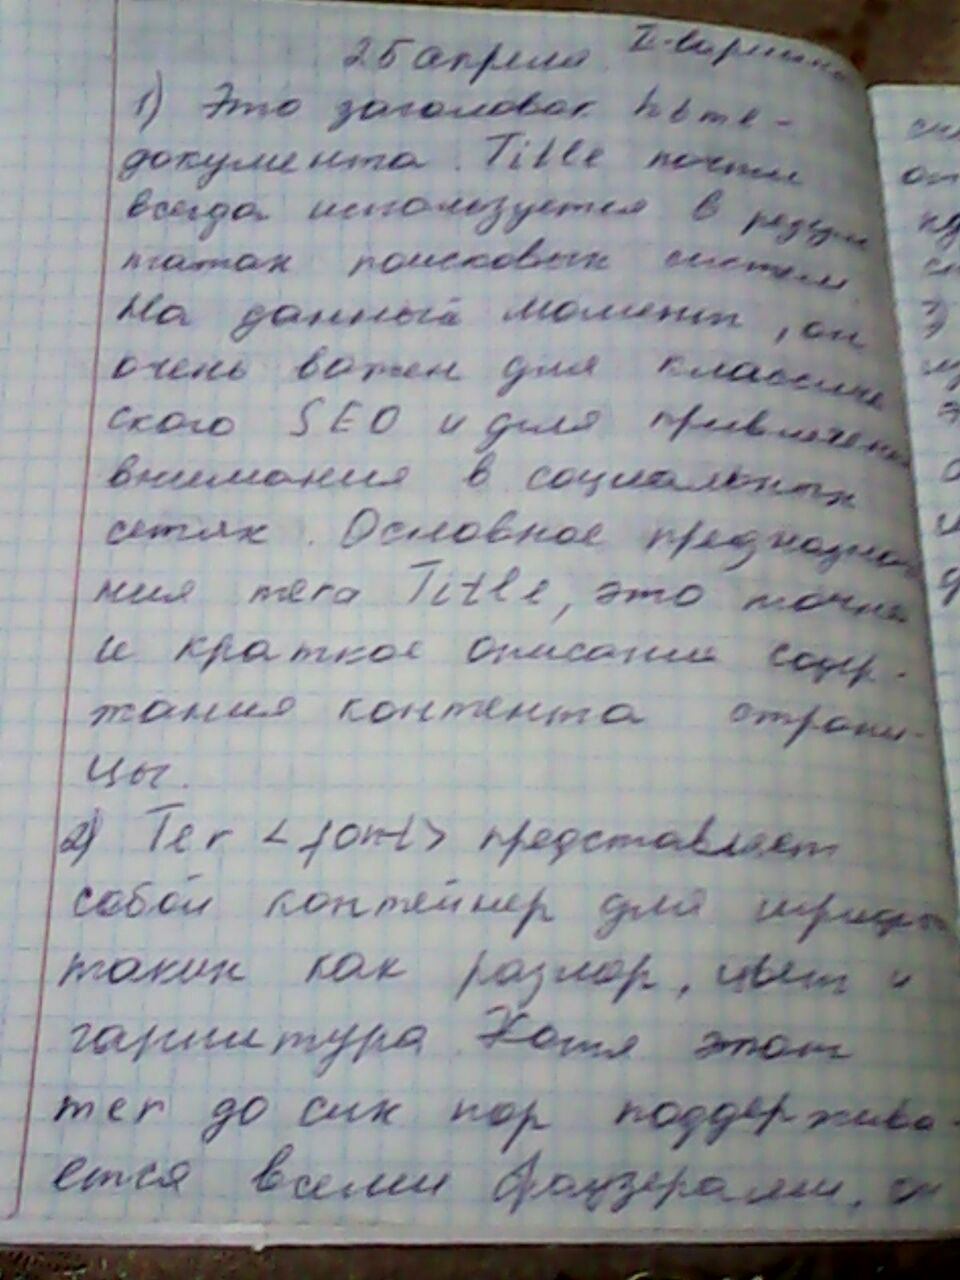 25 апреля. II-вариан
1) Это заголовок html-
документа. Title почти
всегда используется в резул
татах поисковых систем.
На данный момент, он
очень важен для классиче
ского SEO и для привлечени
внимания в социальных
сетях. Основное предназначе
ния тега Title, это точно
и краткое описание содер-
жания контента страни-
цы.
2) Тег <font> представляет
собой контейнер для шрифт
таких как размер, цвет и
гарнитура. Хотя этот
тег до сих пор поддержива-
ется всеми браузерами, он